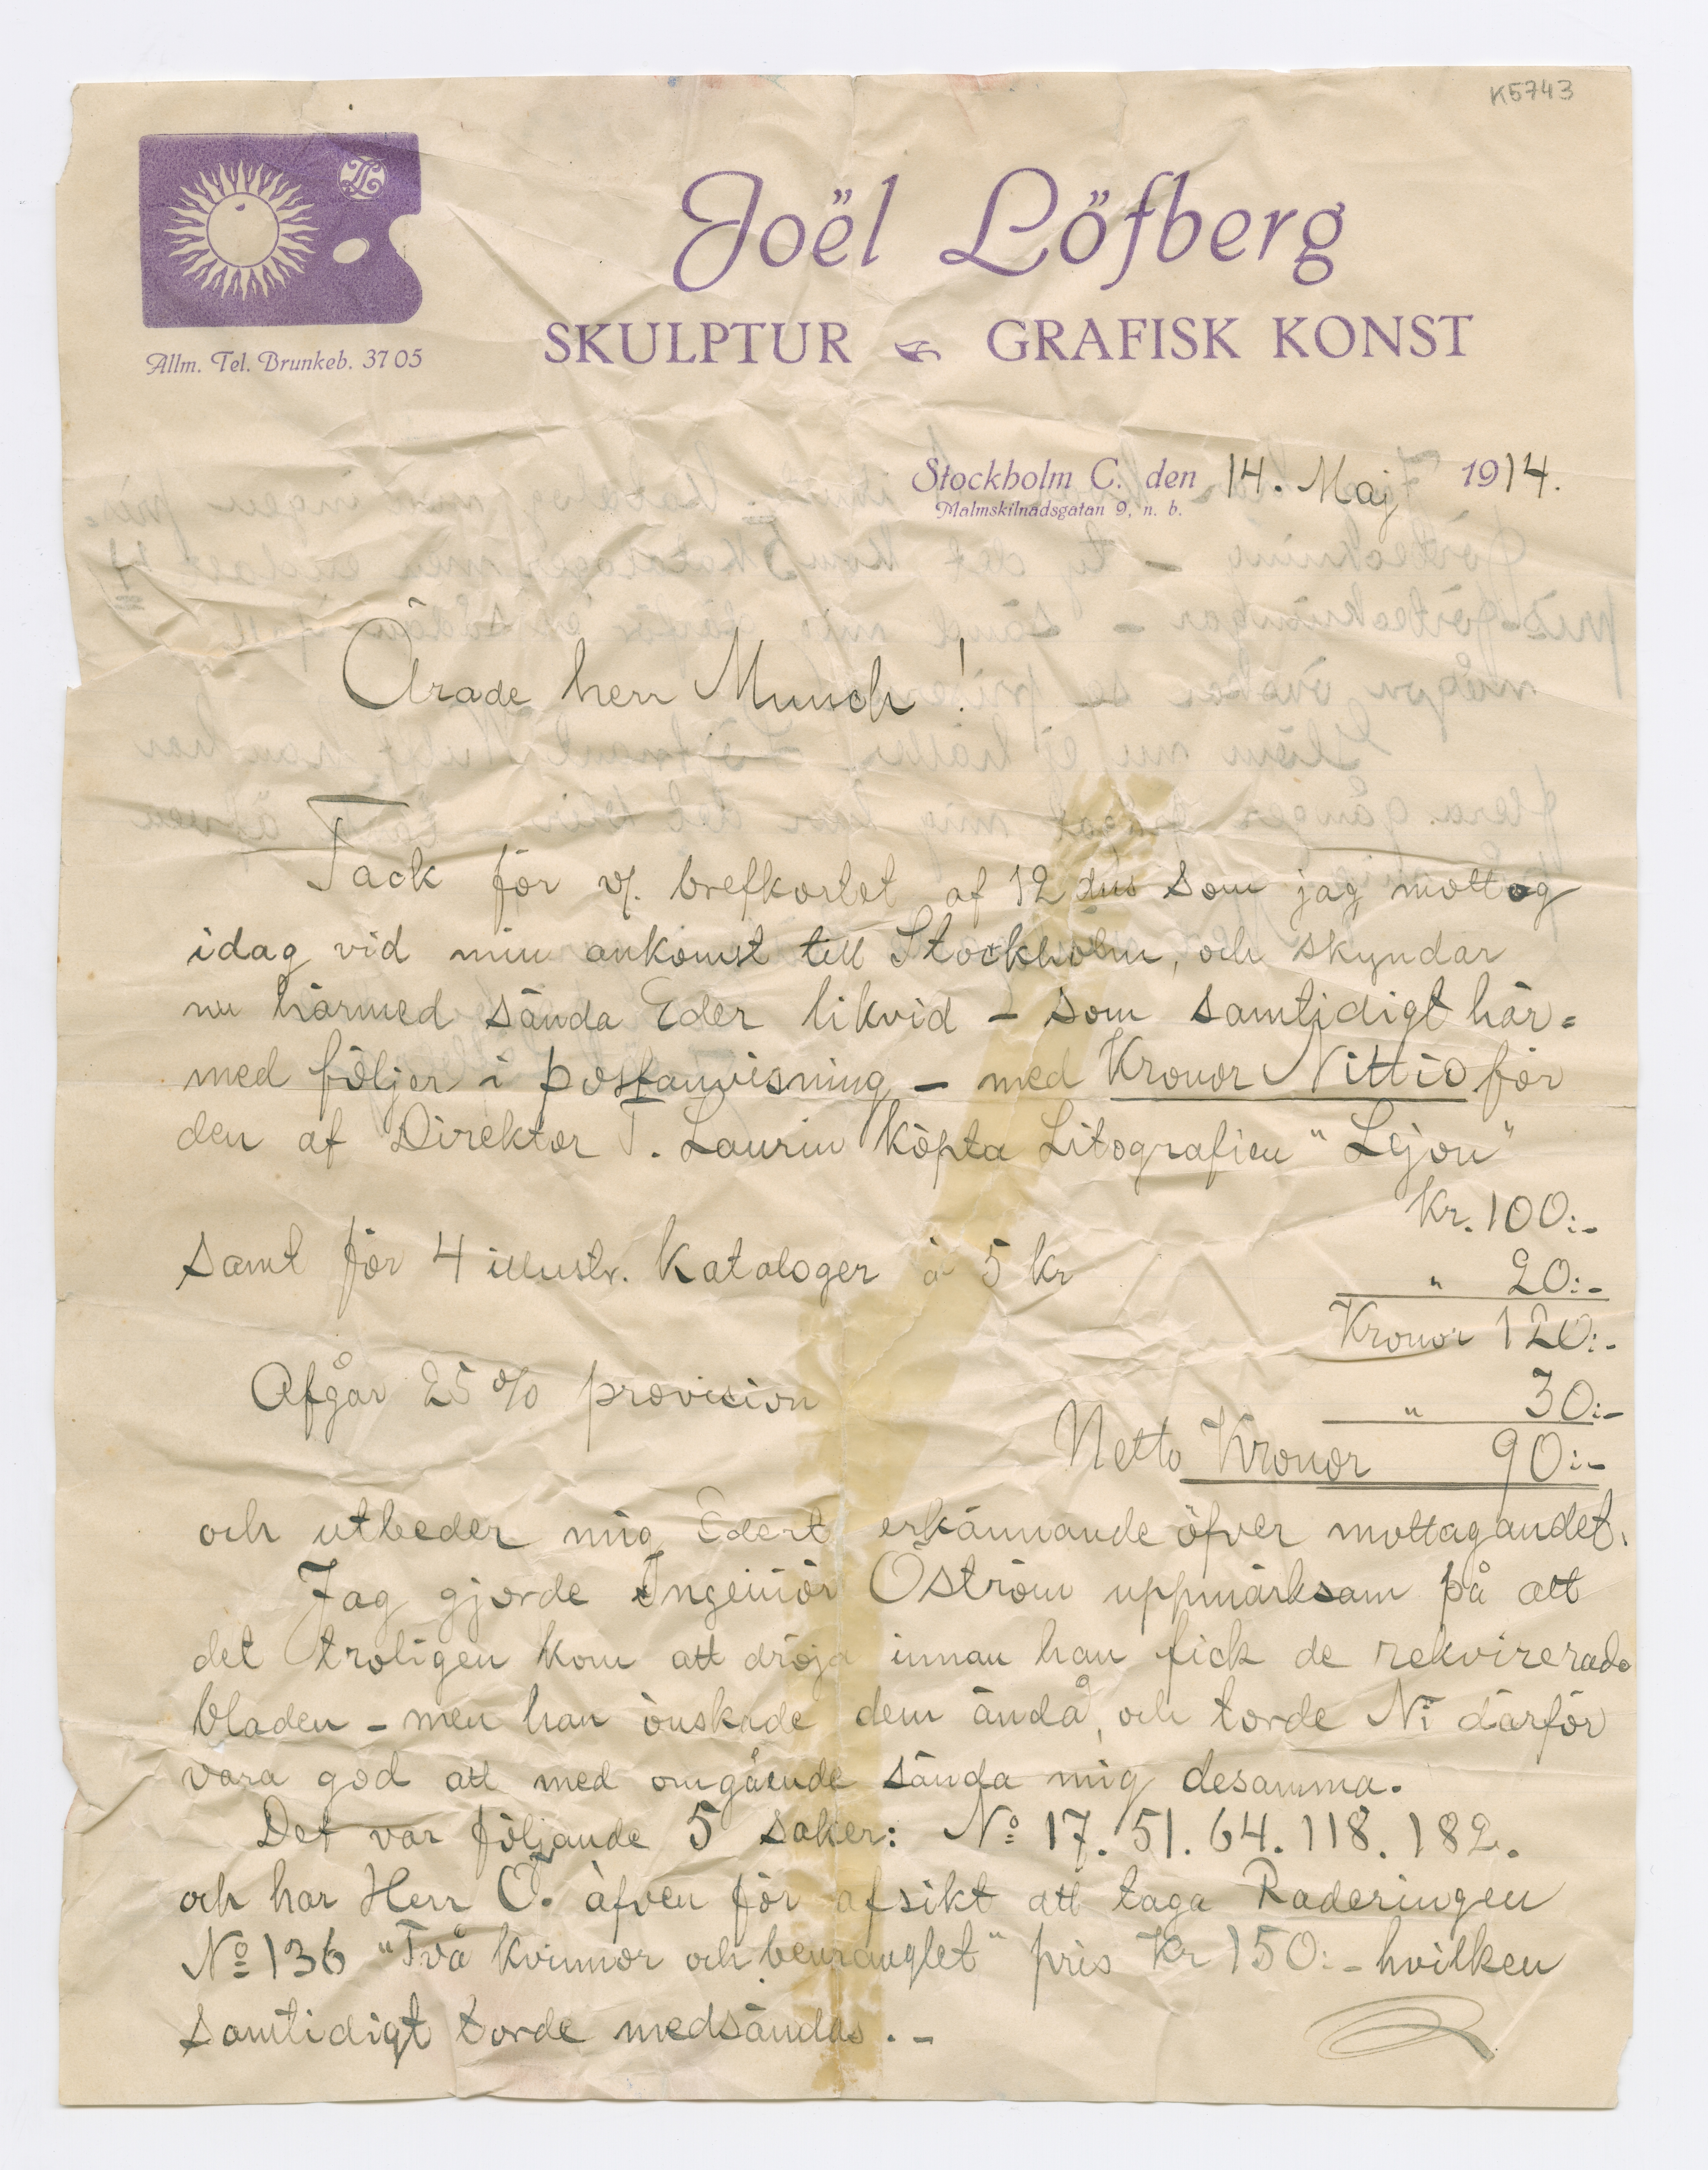 K5743
Joël Löfberg
SKULPTUR GRAFISK KONST
Allm. Tel. Brunkeb. 3705
Stockholm C. den 14. Maj 1914.
Malmskilnadsgatan 9, n. b.
Ärade herr Munch!
Tack för v/. brefkortet af 12 dns som jag mottog
idag vid min ankomst till Stockholm, och skyndar
nu härmed sända Eder likvid – som samtidigt här=
med följer i postanvisning – med Kronor Nittio för
den af Direktör T. Laurin köpta Litografien "Lejon"
Kr. 100:-
samt för 4 illustr. Kataloger à 5 kr " 20:-
Kronor 120:-
Afgår 25 % provision " 30:-
Netto Kronor 90:-
och utbeder mig Edert erkännande öfver mottagandet.
Jag gjorde Ingeniör Öström uppmärksam på att
det troligen kom att dröja innan han fick de rekvirerade
bladen – men han önskade dem ändå, och torde Ni därför
vara god att med omgående sända mig desamma.
Det var följande 5 saker: No 17. 51. 64. 118. 182.
och har Herr Ö. äfven för afsikt att taga Raderingen
No 136 "Två kvinnor och benranglet" pris Kr 150:- hvilken
samtidigt torde medsändas. –